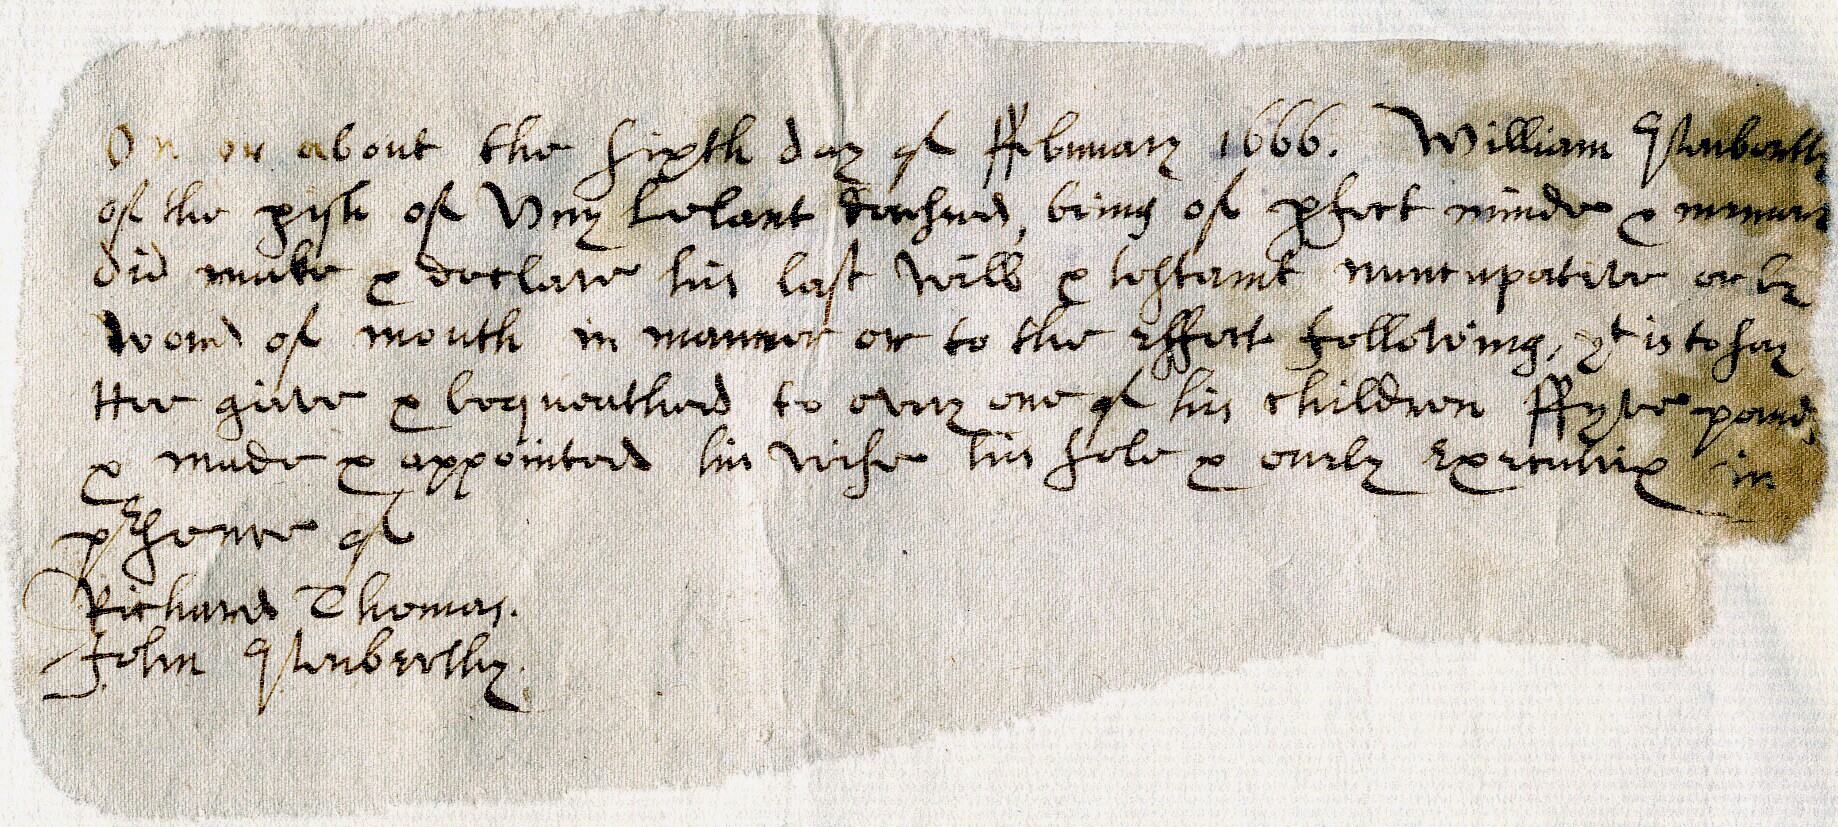 On or about the sixth day of ffebruary 1666. William
of the pish of Vny Lelant deceased, being of pfect minde & memory
did make & declare his last will & testamt nuncupative or by
word of mouth in manner or to the effect following, yt is to say
Hee gave & bequeathed to every one of his children ffyve pounds
& made & appointed his wife his sole & onely Executrix in
psence of
Richard Thomas.
John